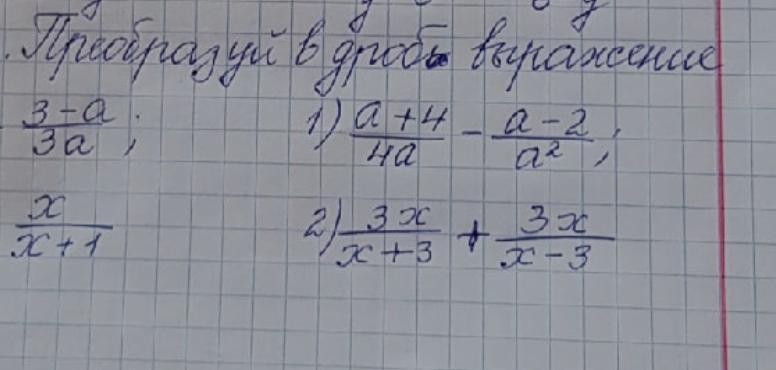 . Преобразуй в дробь выражение
\frac{3-a}{3a}; 1) \frac{a+4}{4a} - \frac{a-2}{a^2};
\frac{x}{x+1} 2) \frac{3x}{x+3} + \frac{3x}{x-3}